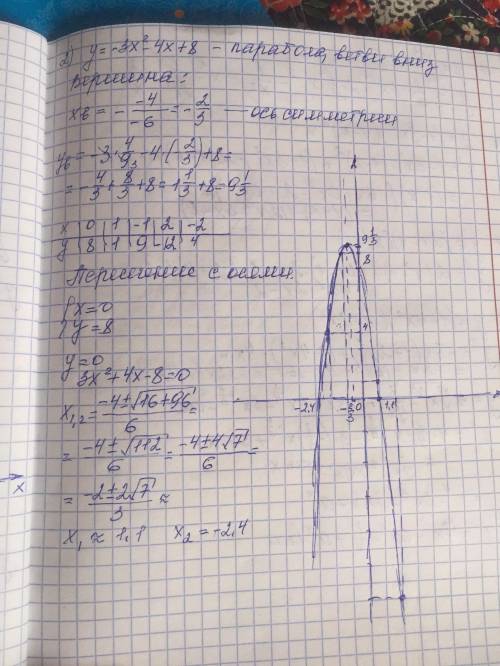 2) y = -3x² - 4x + 8 - парабола, ветви вниз
Вершина:
xв = - -4/-6 = - 2/3 — ось симметрии
yв = -3 · 4/9₃ - 4 · (- 2/3) + 8 =
= - 4/3 + 8/3 + 8 = 1 1/3 + 8 = 9 1/3
x | 0 | 1 | -1 | 2 | -2
y | 8 | 1 | 9 | -12 | 4
Пересечение с осями.
{ x = 0
{ y = 8
y = 0
3x² + 4x - 8 = 0
x₁,₂ = (-4 ± √16 + 96)/6 =
= (-4 ± √112)/6 = (-4 ± 4√7)/6 =
= (-2 ± 2√7)/3 ≈
x₁ ≈ 1,1 x₂ = -2,4
9 1/3
8
4
-2,4 - 2/3 0 1,1
x